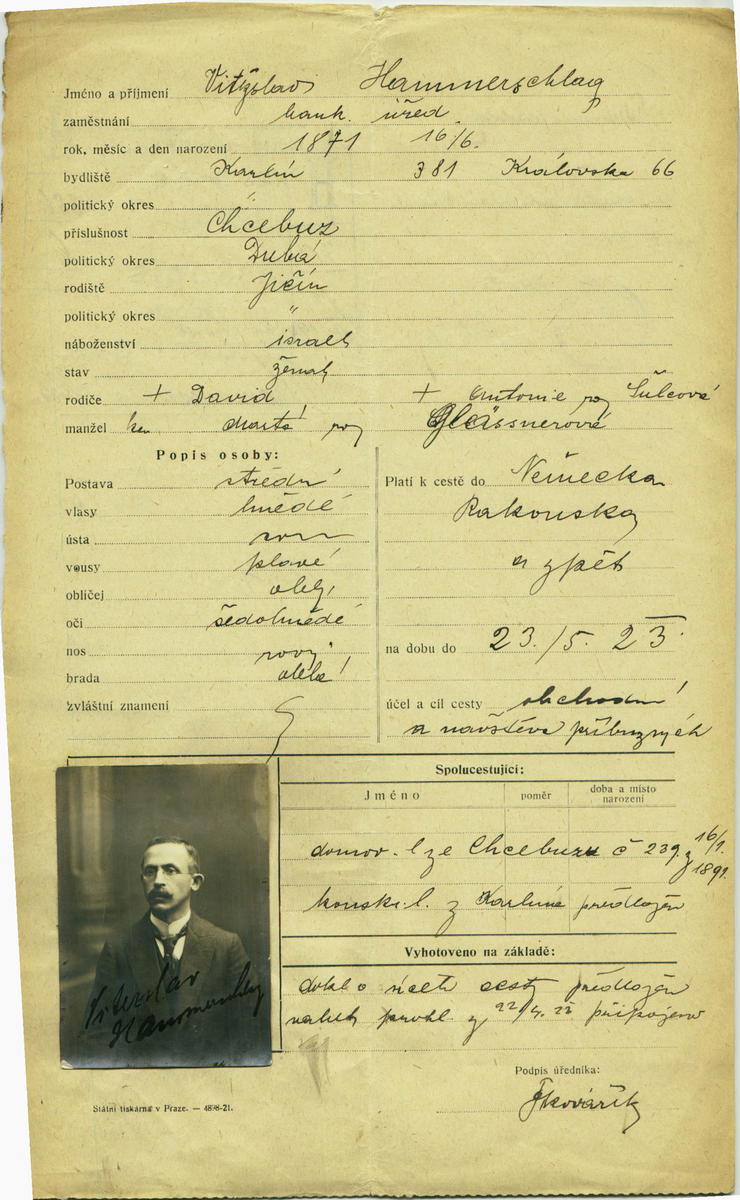 Jméno a příjmení Vítězslav Hammerschlag
zaměstnání bank. úřed.
rok, měsíc a den narození 1871 16/6.
bydliště Karlín 381 Královská 66
politický okres "
příslušnost Chcebuz
politický okres Dubá
rodiště Jičín
politický okres "
náboženství israel
stav ženatý
rodiče + David + Antonie roz Šulcová
manžel ka Marta roz Glässnerová
Popis osoby:
Postava střední
vlasy hnědé
ústa rovn
vousy plavé
obličej obly
oči šedohnědé
nos rovný
brada oblá
zvláštní znamení
Platí k cestě do Německa
Rakouska
a zpět
na dobu do 23./5. 23.
účel a cíl cesty obchodní
a návštěva příbuzných
Spolucestující:
Jméno poměr doba a místo narození
domov. l ze Chcebuzu č 239. z 16/1. 1891
konskr. l. z Karlína předložen
Vyhotoveno na základě:
dokl o účelu cesty předložen
z 22/4. 22 připojeno
Podpis úředníka:
Kovářík
Vítězslav
Hammerschlag
Státní tiskárna v Praze. — 4898-21.